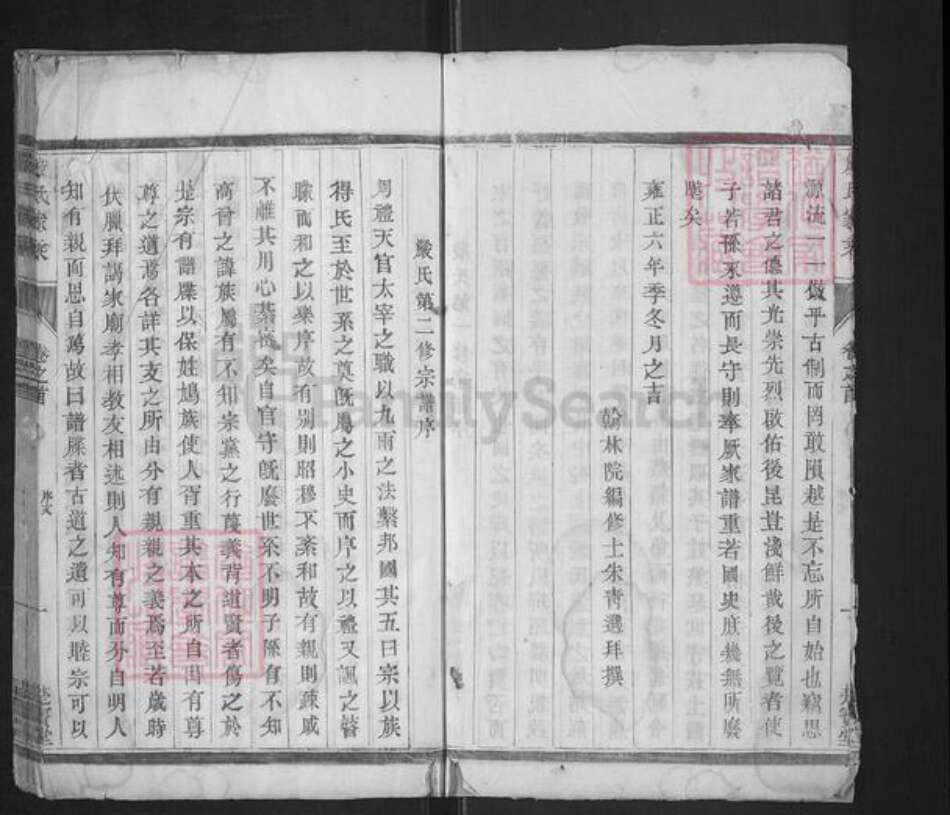 源流一一倣乎古制而罔敢隕越是不忘所自始也竊思
諸君之德其光崇先烈啟佑後昆豈淺鮮哉後之覽者使
子若孫永遵而長守則奉厥家譜重若國史庶幾無所廢
墜矣
雍正六年季冬月之吉
翰林院編修士朱青選拜撰
嚴氏第二修宗譜序
周禮天官太宰之職以九兩之法繫邦國其五曰宗以族
得民至於世系之奠旣屬之小史而序之以禮又諷之瞽
矇而和之以樂序故有別則昭穆不紊和故有親則疎戚
不離其用心綦密矣自官守旣廢世系不明子孫有不知
高曾之諱族屬有不知宗黨之行蔑義背道賢者傷之於
是宗有譜牒以保姓鳩族使人咸重其本之所自出有尊
尊之道焉各詳其支之所由分有親親之義焉至若歲時
伏臘拜謁家廟孝相教友相述則人知有尊而分自明人
知有親而恩自篤故曰譜牒者古道之遺可以睦宗可以
嚴氏家乘
卷之首
序文
FamilySearch